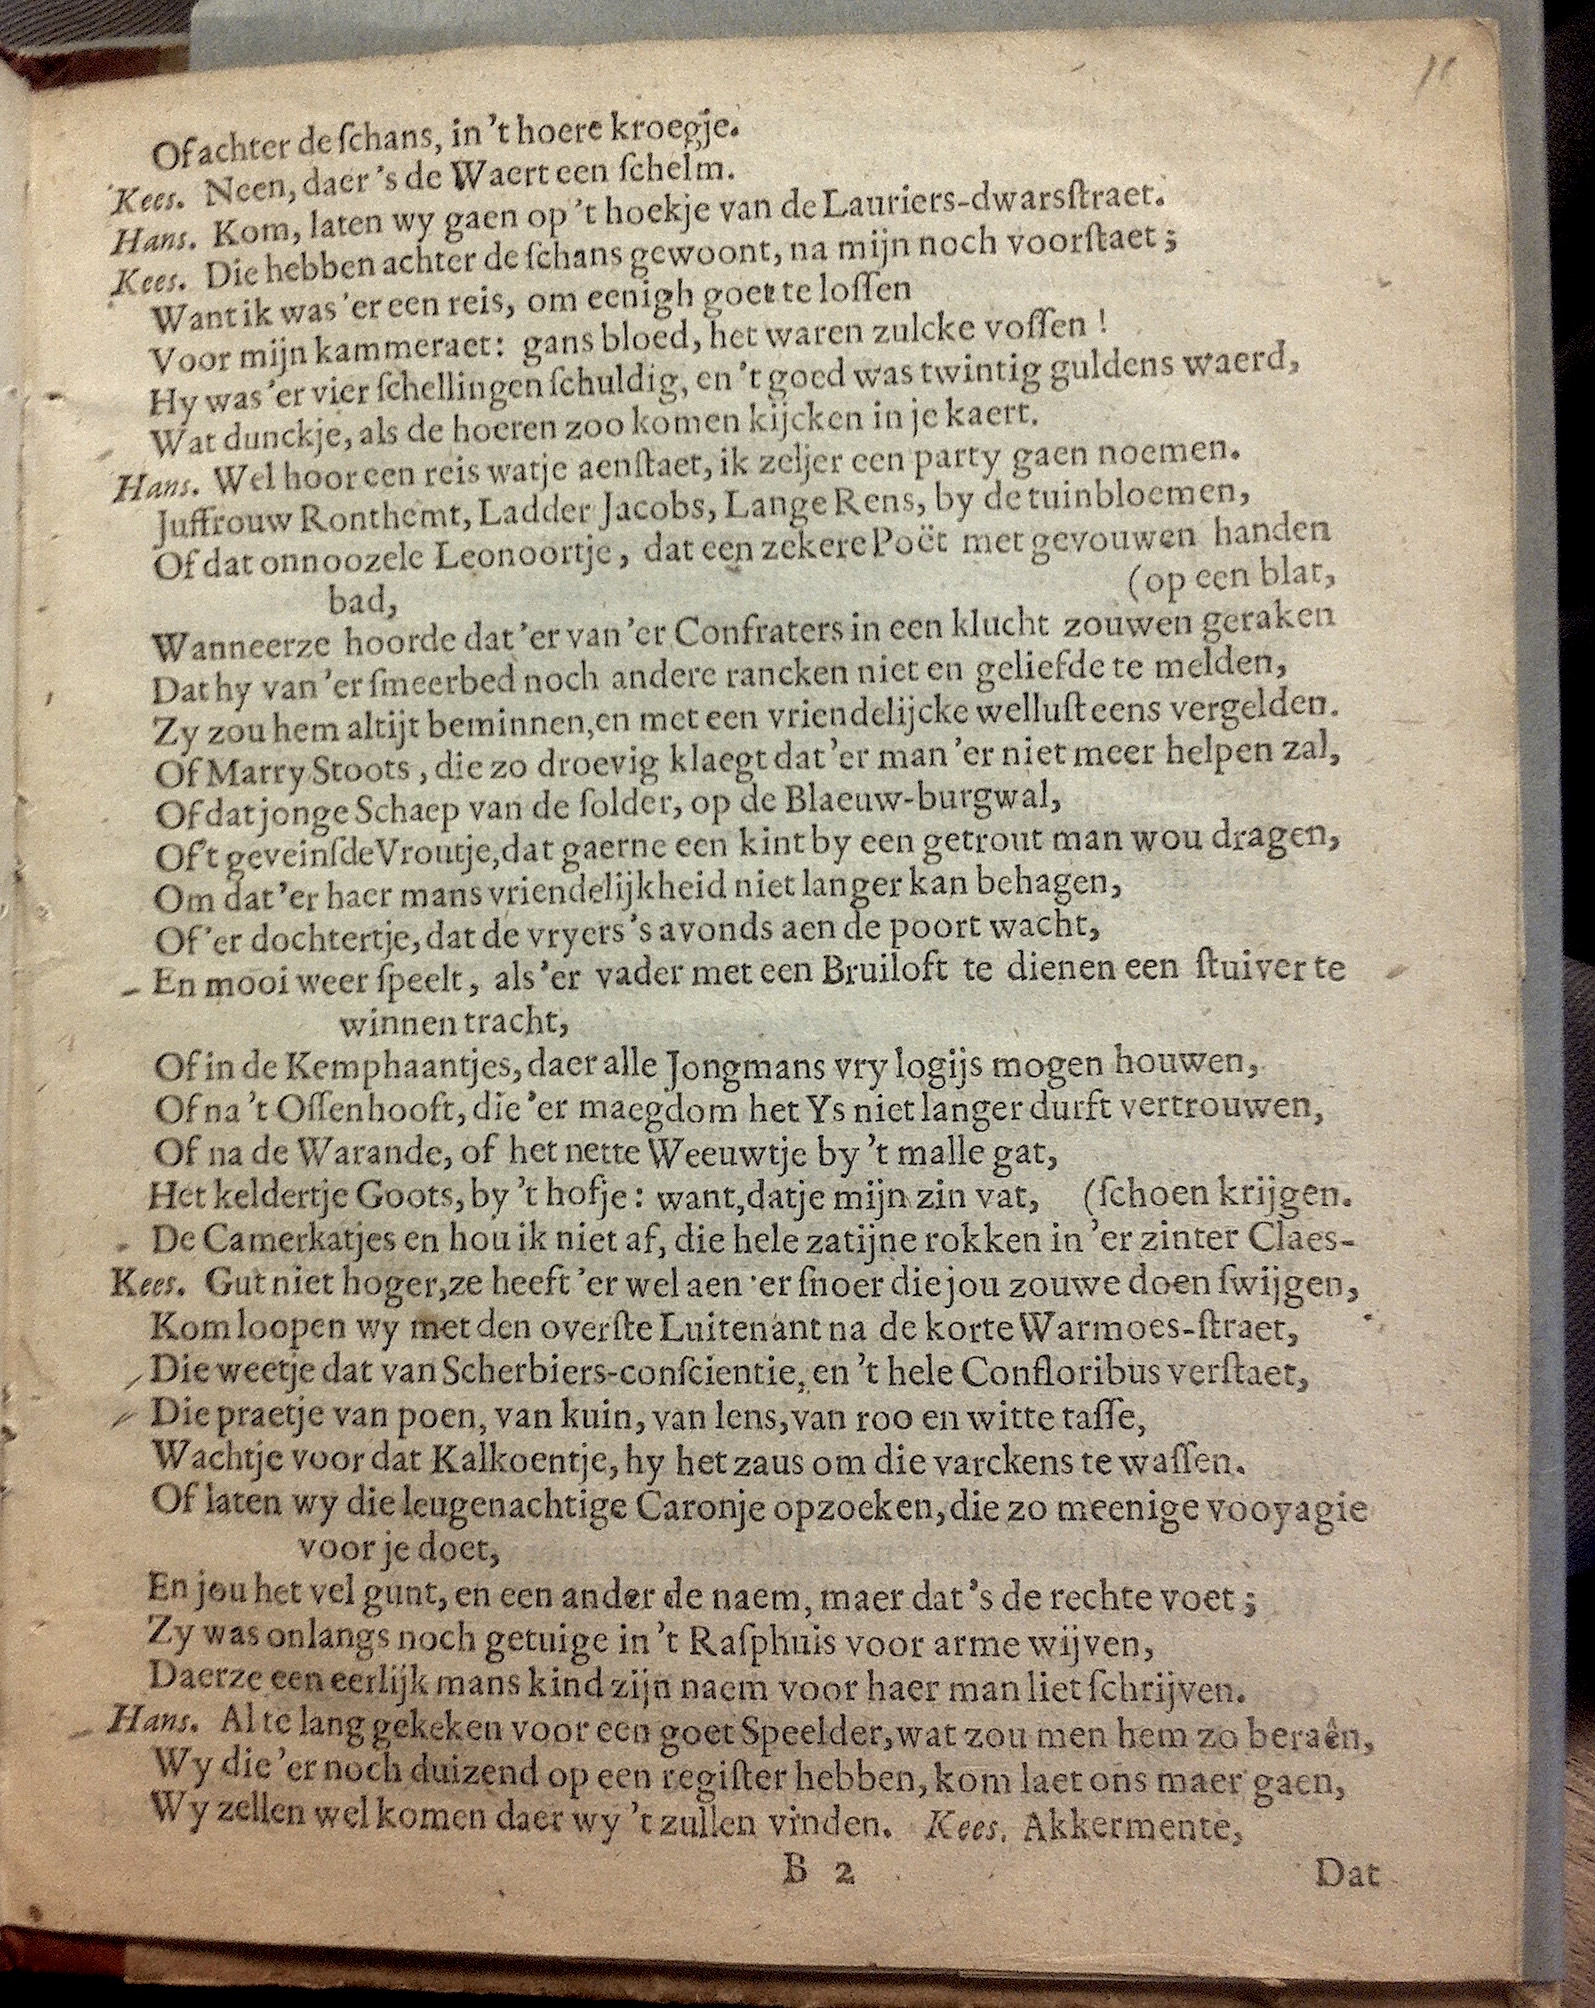 11
Of achter de ſchans, in 't hoere kroegje.
Kees. Neen, daer 's de Waert een ſchelm.
Hans. Kom, laten wy gaen op 't hoekje van de Lauriers-dwarsſtraet.
Kees. Die hebben achter de ſchans gewoont, na mijn noch voorſtaet;
Want ik was 'er een reis, om eenigh goet te loſſen
Voor mijn kammeraet: gans bloed, het waren zulcke voſſen!
Hy was 'er vier ſchellingen ſchuldig, en 't goed was twintig guldens waerd,
Wat dunckje, als de hoeren zoo komen kijcken in je kaert.
Hans. Wel hoor een reis watje aenſtaet, ik zeljer een party gaen noemen.
Juffrouw Ronthemt, Ladder Jacobs, Lange Rens, by de tuinbloemen,
Of dat onnoozele Leonoortje, dat een zekere Poët met gevouwen handen
bad, (op een blat,
Wanneerze hoorde dat 'er van 'er Confraters in een klucht zouwen geraken
Dat hy van 'er ſmeerbed noch andere rancken niet en geliefde te melden,
Zy zou hem altijt beminnen, en met een vriendelijcke welluſt eens vergelden.
Of Marry Stoots, die zo droevig klaegt dat 'er man 'er niet meer helpen zal,
Of dat jonge Schaep van de ſolder, op de Blaeuw-burgwal,
Of 't geveinſde Vroutje, dat gaerne een kint by een getrout man wou dragen,
Om dat 'er haer mans vriendelijkheid niet langer kan behagen,
Of 'er dochtertje, dat de vryers 's avonds aen de poort wacht,
En mooi weer ſpeelt, als 'er vader met een Bruiloft te dienen een ſtuiver te
winnen tracht,
Of in de Kemphaantjes, daer alle Jongmans vry logijs mogen houwen,
Of na 't Oſſenhooft, die 'er maegdom het Ys niet langer durft vertrouwen,
Of na de Warande, of het nette Weeuwtje by 't malle gat,
Het keldertje Goots, by 't hofje: want, datje mijn zin vat, (ſchoen krijgen.
De Camerkatjes en hou ik niet af, die hele zatijne rokken in 'er zinter Claes-
Kees. Gut niet hoger, ze heeft 'er wel aen 'er ſnoer die jou zouwe doen ſwijgen,
Kom loopen wy met den overſte Luitenant na de korte Warmoes-ſtraet,
Die weetje dat van Scherbiers-conſcientie, en 't hele Confloribus verſtaet,
Die praetje van poen, van kuin, van lens, van roo en witte taſſe,
Wachtje voor dat Kalkoentje, hy het zaus om die varckens te waſſen.
Of laten wy die leugenachtige Caronje opzoeken, die zo meenige vooyagie
voor je doet,
En jou het vel gunt, en een ander de naem, maer dat 's de rechte voet;
Zy was onlangs noch getuige in 't Raſphuis voor arme wijven,
Daerze een eerlijk mans kind zijn naem voor haer man liet ſchrijven.
Hans. Al te lang gekeken voor een goet Speelder, wat zou men hem zo beraên,
Wy die 'er noch duizend op een regiſter hebben, kom laet ons maer gaen,
Wy zellen wel komen daer wy 't zullen vinden. Kees. Akkermente,
B 2 Dat